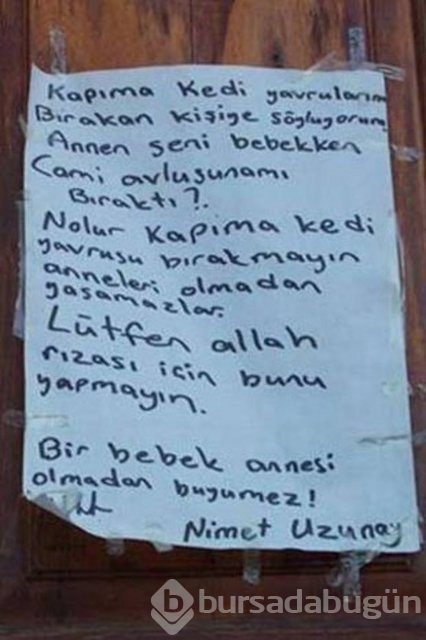 Kapıma Kedi yavrularını
Bırakan kişiye söylüyorum
Annen seni bebekken
Cami avlusunamı
Bıraktı?.
Nolur Kapıma kedi
yavrusu bırakmayın
anneleri olmadan
yaşamazlar.
Lütfen allah
rızası için bunu
yapmayın.
Bir bebek annesi
olmadan buyumez!
Nimet Uzunay
bursadabugün